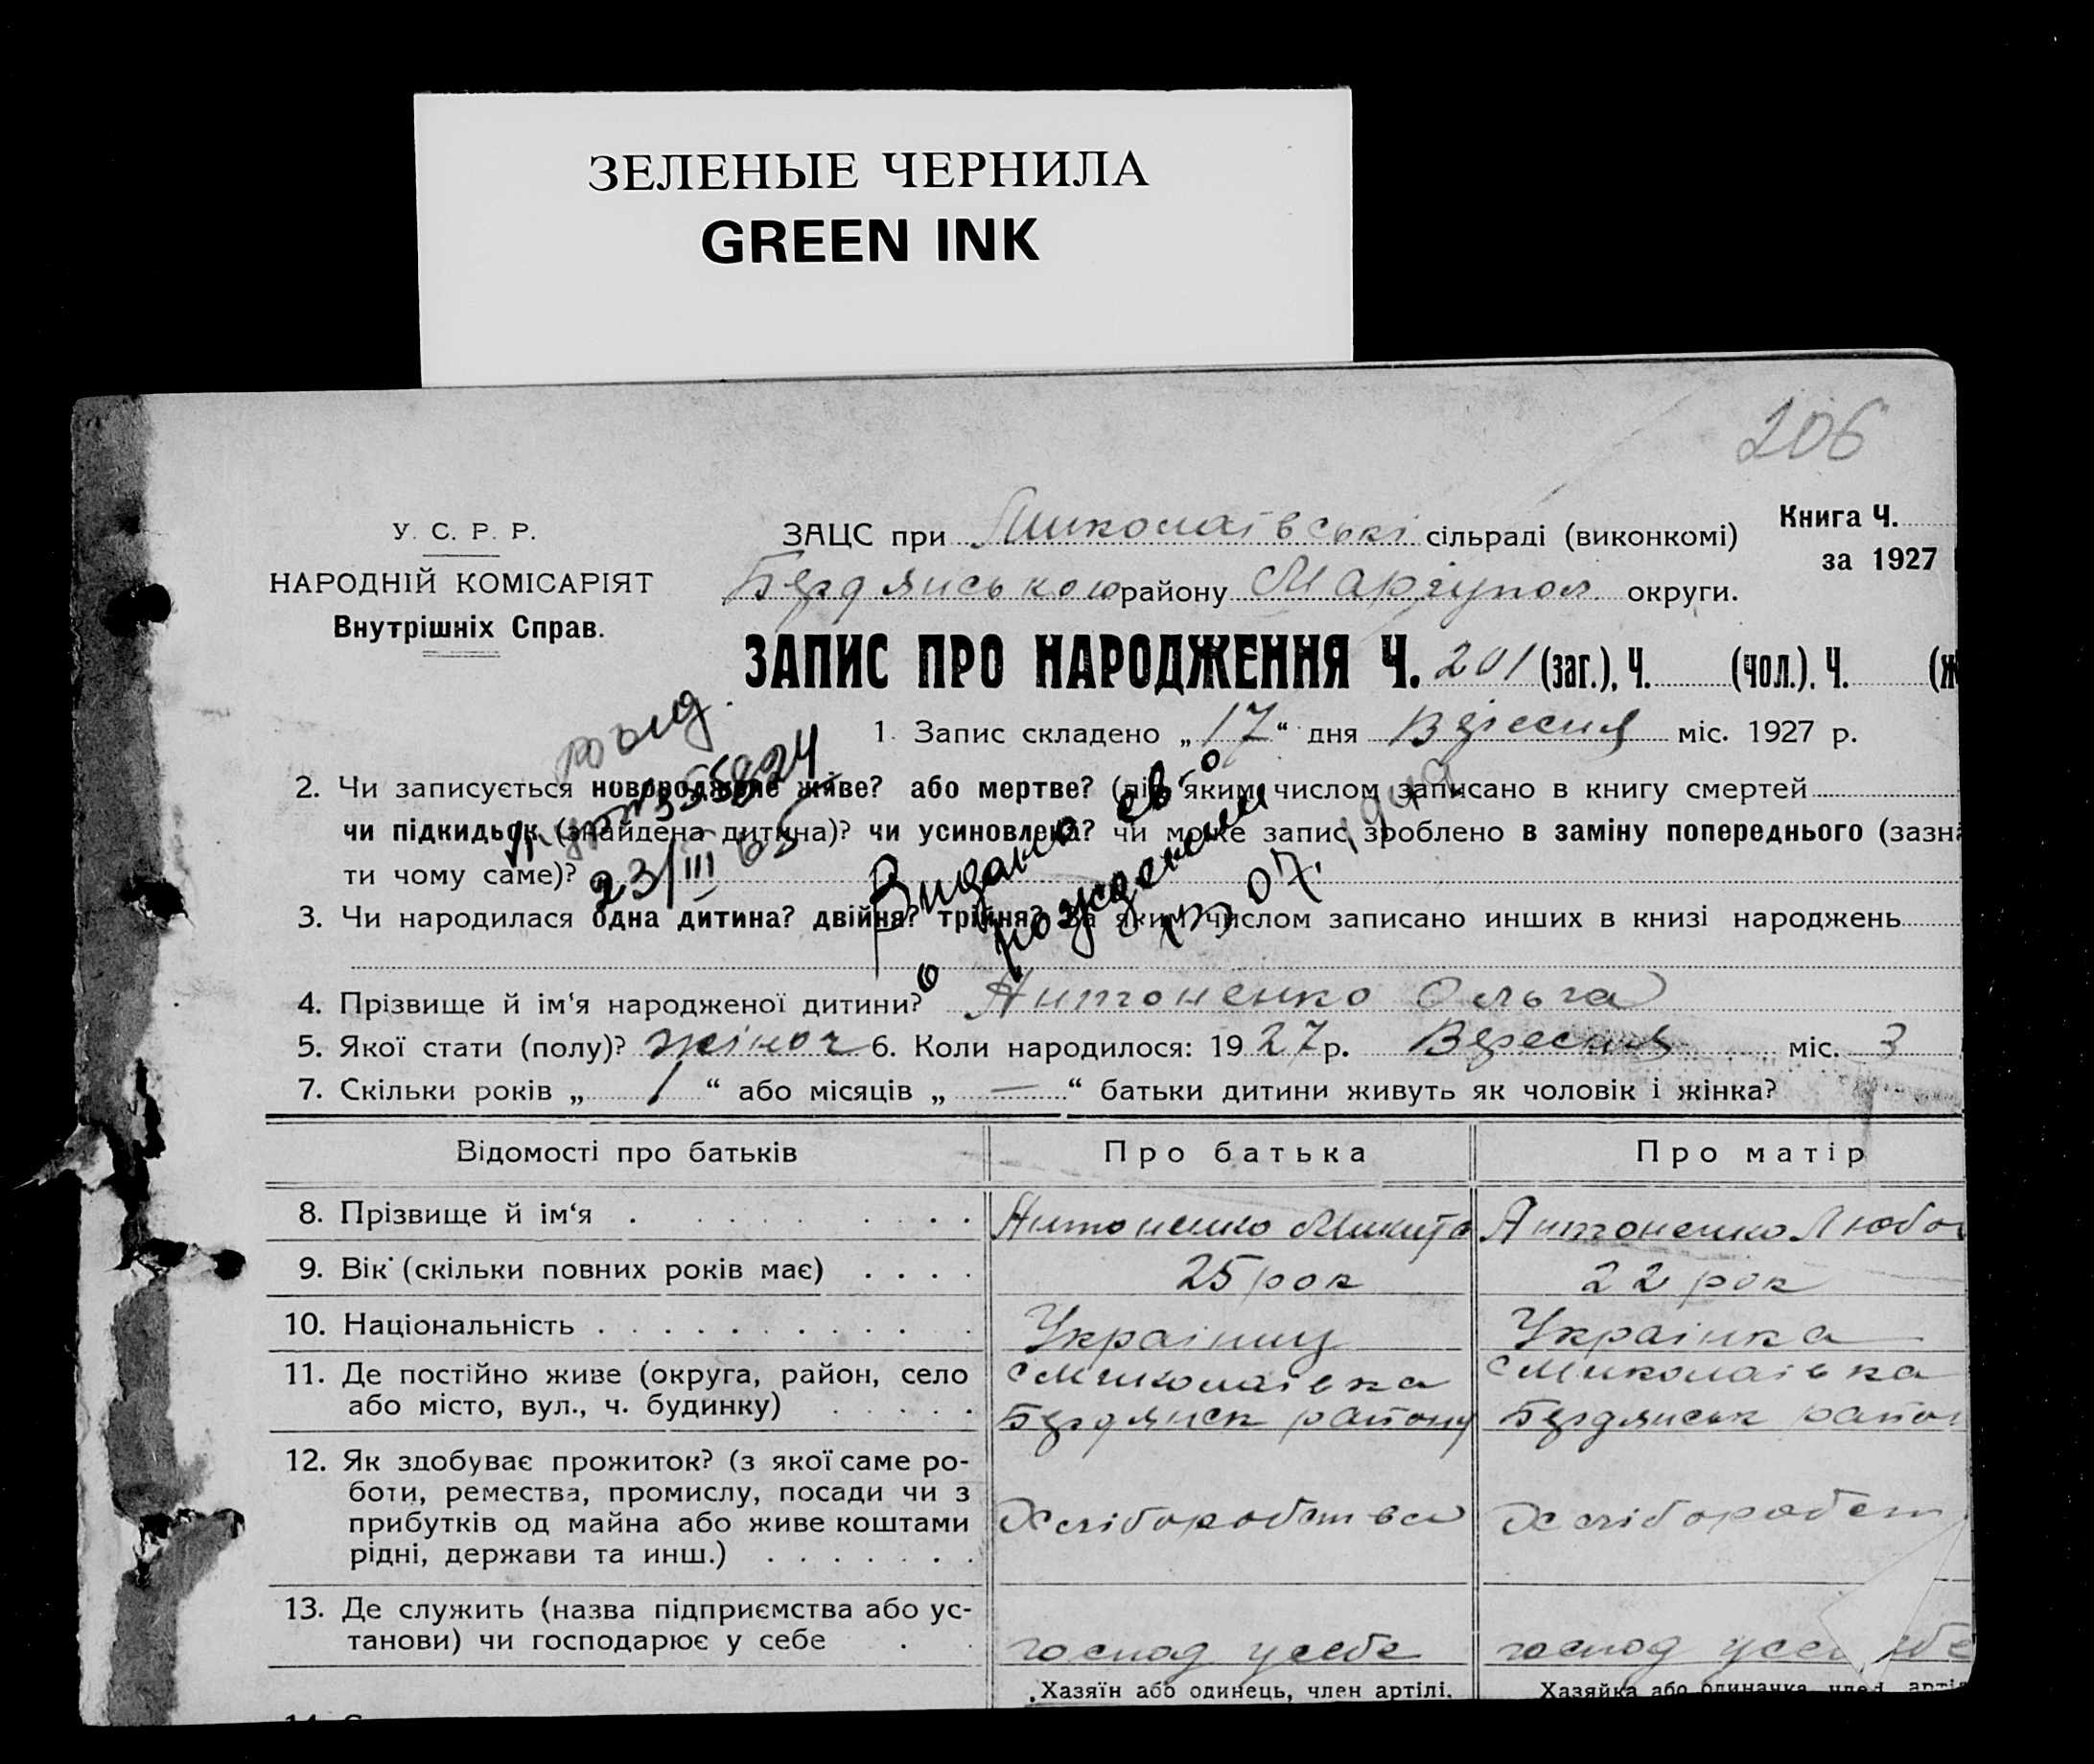 ЗЕЛЕНЫЕ ЧЕРНИЛА
GREEN INK
206
У. С. Р. Р.
НАРОДНІЙ КОМІСАРІЯТ
Внутрішніх Справ.
ЗАЦС при Миколаївські сільраді (виконкомі)
Бердянського району Маріупол. округи.
Книга Ч.
за 1927
ЗАПИС ПРО НАРОДЖЕННЯ Ч. 201 (заг.), Ч. (чол.). Ч. (ж
1. Запис складено „17“ дня Вересня міс. 1927 р.
2. Чи записується новороджене живе? або мертве? (під яким числом записано в книгу смертей
чи підкидьок (знайдена дитина)? чи усиновлена? чи може запис зроблено в заміну попереднього (зазна
ти чому саме)?
23/III 65
Видано св-о
о рождении
07.
3. Чи народилася одна дитина? двійня? трійня? За яким числом записано инших в книзі народжень
4. Прізвище й ім‘я народженої дитини? Антоненко Ольга
5. Якої стати (полу)? жіноч 6. Коли народилося: 1927 р. Вересня міс. 3
7. Скільки років „ 1 “ або місяців „ — “ батьки дитини живуть як чоловік і жінка?
Відомості про батьків Про батька Про матір
8. Прізвище й ім‘я Антоненко Микита Антоненко Любов
9. Вік (скільки повних років має) 25 рок 22 рок
10. Національність Українец Українка
11. Де постійно живе (округа, район, село
або місто, вул., ч. будинку)
с Миколаівка
Бердянск району
с Миколаівка
Бердянськ район
12. Як здобуває прожиток? (з якої саме ро-
боти, ремества, промислу, посади чи з
прибутків од майна або живе коштами
рідні, держави та инш.)
Хліборобства
Хліборобст
13. Де служить (назва підприємства або ус-
танови) чи господарює у себе
господ усебе
господ усеб
Хазяїн або одинець, член артілі.
Хазяйка або одиначка, член арті